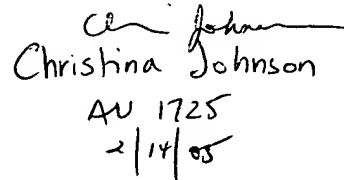 Christina Johnson
AU 1725
2/14/05